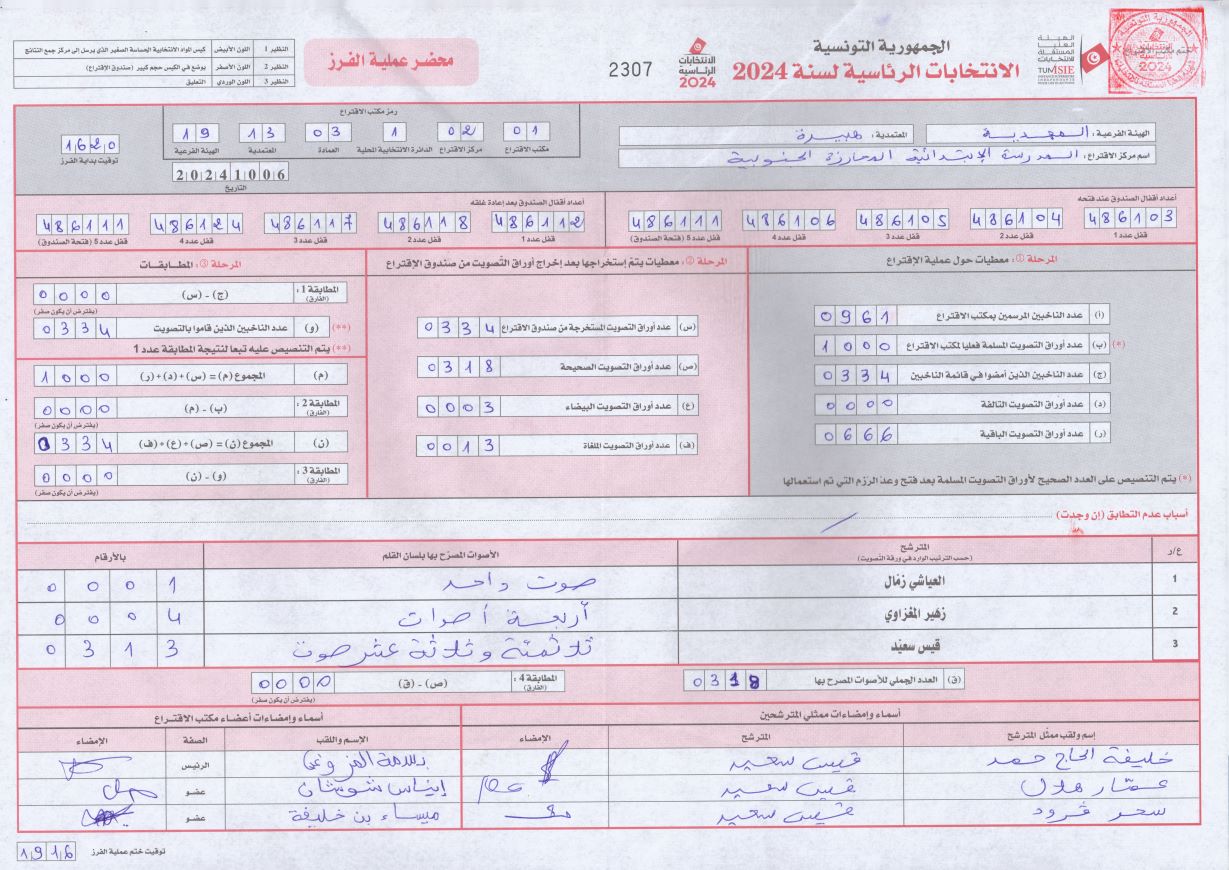 الجمهورية التونسية
الانتخابات الرئاسية لسنة 2024
الهيئة
العليا
المستقلة
للانتخابات
TUNISIE
الانتخابات
الرئاسية
2024
2307
محضر عملية الفرز
النظير 1 اللون الأبيض كيس المواد الانتخابية الحساسة الصغير الذي يرسل إلى مركز جمع النتائج
النظير 2 اللون الأصفر يوضع في الكيس حجم كبير (صندوق الإقتراع)
النظير 3 اللون الوردي التعليق
الهيئة الفرعية : المهدية المعتمدية : هبيرة
اسم مركز الاقتراع : المدرسة الإبتدائية المحارزة الجنوبية
رمز مكتب الاقتراع
01 02 1 03 13 19
مكتب الاقتراع مركز الاقتراع الدائرة الانتخابية المحلية العمادة المعتمدية الهيئة الفرعية
20241006
التاريخ
1620
توقيت بداية الفرز
أعداد أقفال الصندوق عند فتحه
486103 486104 486105 486106 486111
قفل عدد 1 قفل عدد 2 قفل عدد 3 قفل عدد 4 قفل عدد 5 (فتحة الصندوق)
أعداد أقفال الصندوق بعد إعادة غلقه
486112 486118 486117 486124 486111
قفل عدد 1 قفل عدد 2 قفل عدد 3 قفل عدد 4 قفل عدد 5 (فتحة الصندوق)
المرحلة ① : معطيات حول عملية الإقتراع
(أ) عدد الناخبين المرسمين بمكتب الاقتراع 0961
(*) (ب) عدد أوراق التصويت المسلمة فعليا لمكتب الاقتراع 1000
(ج) عدد الناخبين الذين أمضوا في قائمة الناخبين 0334
(د) عدد أوراق التصويت التالفة 0000
(ر) عدد أوراق التصويت الباقية 0666
(*) يتم التنصيص على العدد الصحيح لأوراق التصويت المسلمة بعد فتح وعد الرزم التي تم استعمالها
المرحلة ② : معطيات يتم إستخراجها بعد إخراج أوراق التصويت من صندوق الإقتراع
(س) عدد أوراق التصويت المستخرجة من صندوق الاقتراع 0334
(ص) عدد أوراق التصويت الصحيحة 0318
(ع) عدد أوراق التصويت البيضاء 0003
(ف) عدد أوراق التصويت الملغاة 0013
المرحلة ③ : المطابقات
المطابقة 1 : (الفارق) (ج) - (س) 0000
(يفترض أن يكون صفر)
(**) (و) عدد الناخبين الذين قاموا بالتصويت 0334
(**) يتم التنصيص عليه تبعا لنتيجة المطابقة عدد 1
(م) المجموع (م) = (س) + (د) + (ر) 1000
المطابقة 2 : (الفارق) (ب) - (م) 0000
(يفترض أن يكون صفر)
(ن) المجموع (ن) = (ص) + (ع) + (ف) 0334
المطابقة 3 : (الفارق) (و) - (ن) 0000
(يفترض أن يكون صفر)
أسباب عدم التطابق (إن وجدت)
ع/ر المترشح الأصوات المصرّح بها بلسان القلم بالأرقام
(حسب الترتيب الوارد في ورقة التصويت)
1 العياشي زمّال صوت واحد 0001
2 زهير المغزاوي أربعة أصوات 0004
3 قيس سعيّد ثلاثمئة وثلاثة عشر صوت 0313
(ق) العدد الجملي للأصوات المصرح بها 0318
المطابقة 4 : (الفارق) (ص) - (ق) 0000
(يفترض أن يكون صفر)
أسماء وإمضاءات ممثلي المترشحين
إسم ولقب ممثل المترشح المترشح الإمضاء
خليفة الحاج حمد قيس سعيد
عمّار هلال قيس سعيد
سحر قرود قيس سعيد
أسماء وإمضاءات أعضاء مكتب الاقتراع
الإسم واللقب الصفة الإمضاء
الرئيس
إيناس شوشان عضو
ميساء بن خليفة عضو
توقيت ختم عملية الفرز 1916